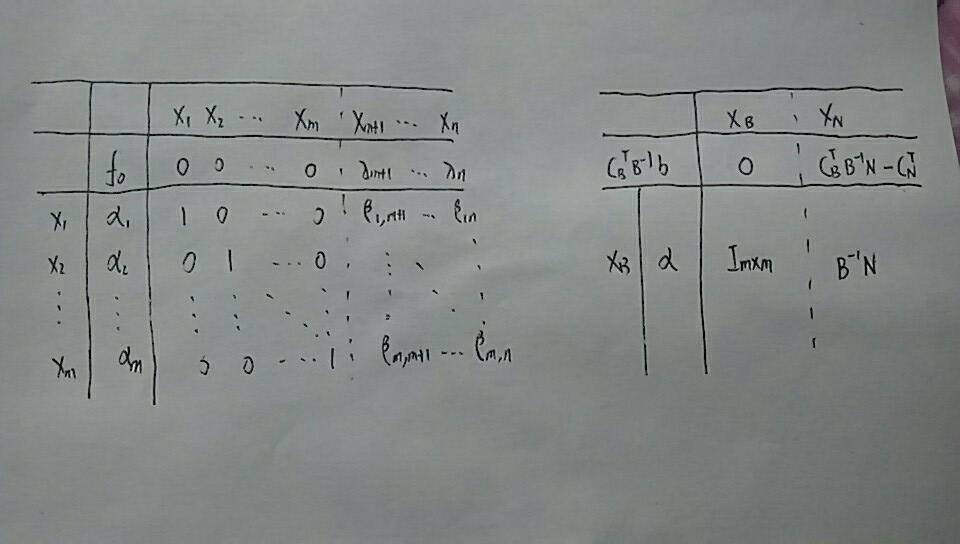 x₁ x₂ ⋯ xₘ xₘ₊₁ ⋯ xₙ
f₀ 0 0 ⋯ 0 λₘ₊₁ ⋯ λₙ
x₁ α₁ 1 0 ⋯ 0 β₁,ₘ₊₁ ⋯ β₁ₙ
x₂ α₂ 0 1 ⋯ 0 ⋮ ⋱ ⋮
⋮ ⋮ ⋮ ⋮ ⋱ ⋮ ⋮ ⋱ ⋮
xₘ αₘ 0 0 ⋯ 1 βₘ,ₘ₊₁ ⋯ βₘ,ₙ
x_B x_N
C_B^T B⁻¹b 0 C_B^T B⁻¹N − C_N^T
x_B α Iₘₓₘ B⁻¹N